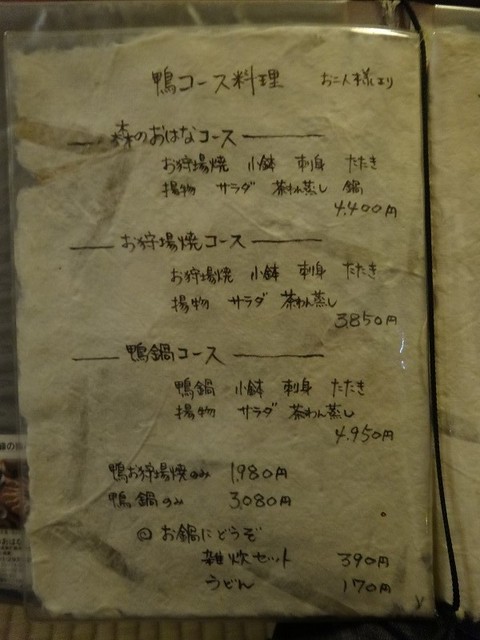 鴨コース料理 お二人様より
森のおはなコース
お狩場焼 小鉢 刺身 たたき
揚物 サラダ 茶わん蒸し 鍋
4,400円
お狩場焼コース
お狩場焼 小鉢 刺身 たたき
揚物 サラダ 茶わん蒸し
3,850円
鴨鍋コース
鴨鍋 小鉢 刺身 たたき
揚物 サラダ 茶わん蒸し
4,950円
鴨お狩場焼のみ 1,980円
鴨鍋のみ 3,080円
◎ お鍋にどうぞ
雑炊セット 390円
うどん 170円